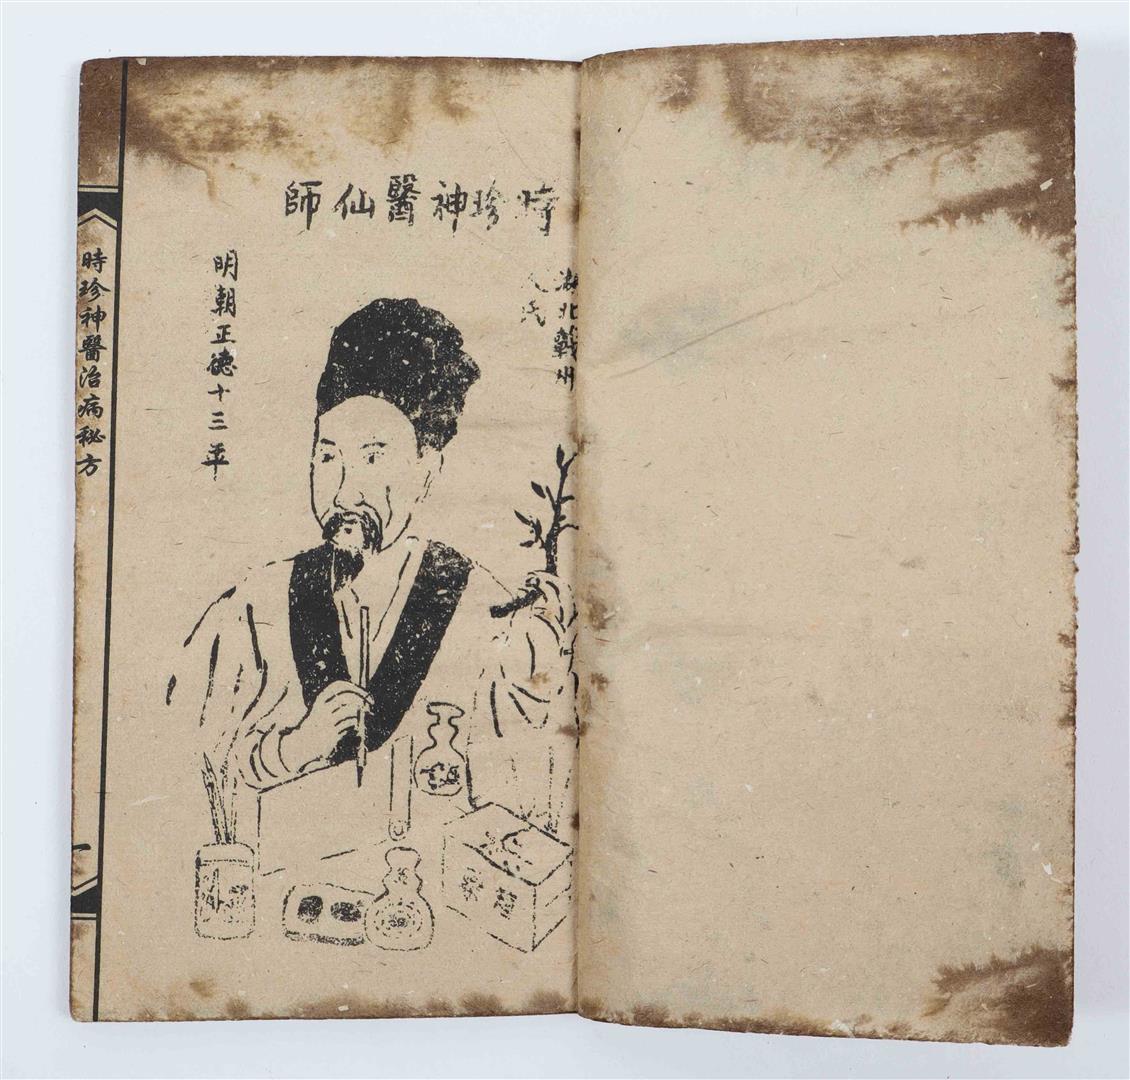 時珍神醫仙師
湖北蘄州
人氏
明朝正德十三年
時珍神醫治病秘方
一